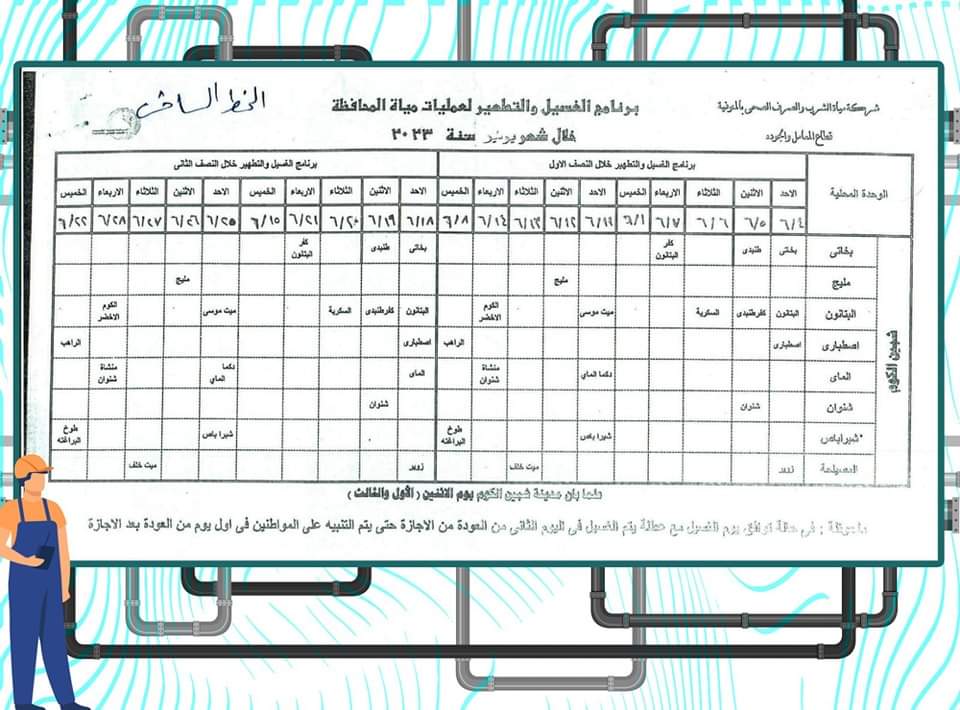 شركة مياة الشرب والصرف الصحى بالمنوفية
قطاع المعامل والجوده
برنامج الغسيل والتطهير لعمليات مياة المحافظة
خلال شهر يونيو سنة ٢٠٢٣
الخط الساخن
الوحدة المحلية
برنامج الغسيل والتطهير خلال النصف الاول
برنامج الغسيل والتطهير خلال النصف الثانى
الاحد الاثنين الثلاثاء الاربعاء الخميس الاحد الاثنين الثلاثاء الاربعاء الخميس الاحد الاثنين الثلاثاء الاربعاء الخميس الاحد الاثنين الثلاثاء الاربعاء الخميس
٦/٤ ٦/٥ ٦/٦ ٦/٧ ٦/١ ٦/١١ ٦/١٢ ٦/١٣ ٦/١٤ ٦/٨ ٦/١٨ ٦/١٩ ٦/٢٠ ٦/٢١ ٦/١٥ ٦/٢٥ ٦/٢٦ ٦/٢٧ ٦/٢٨ ٦/٢٢
شبين الكوم
بخاتى بخاتى طنبدى كفر البتانون بخاتى طنبدى كفر البتانون
مليج مليج مليج
البتانون البتانون كفرطنبدى السكرية ميت موسى الكوم الاخضر البتانون كفرطنبدى السكرية ميت موسى الكوم الاخضر
اصطبارى اصطبارى الراهب اصطبارى الراهب
الماى دكما الماي منشاة شنوان الماى دكما الماي منشاة شنوان
شنوان شنوان شنوان
شبراباص شبرا باص طوخ البراغته شبرا باص طوخ البراغته
المصيلحة زوير ميت خلف زوير ميت خلف
علما بان مدينة شبين الكوم يوم الاثنين ( الأول والثالث )
ملحوظة : فى حالة توافق يوم الغسيل مع عطلة يتم الغسيل فى اليوم الثانى من العودة من الاجازة حتى يتم التنبيه على المواطنين فى اول يوم من العودة بعد الاجازة